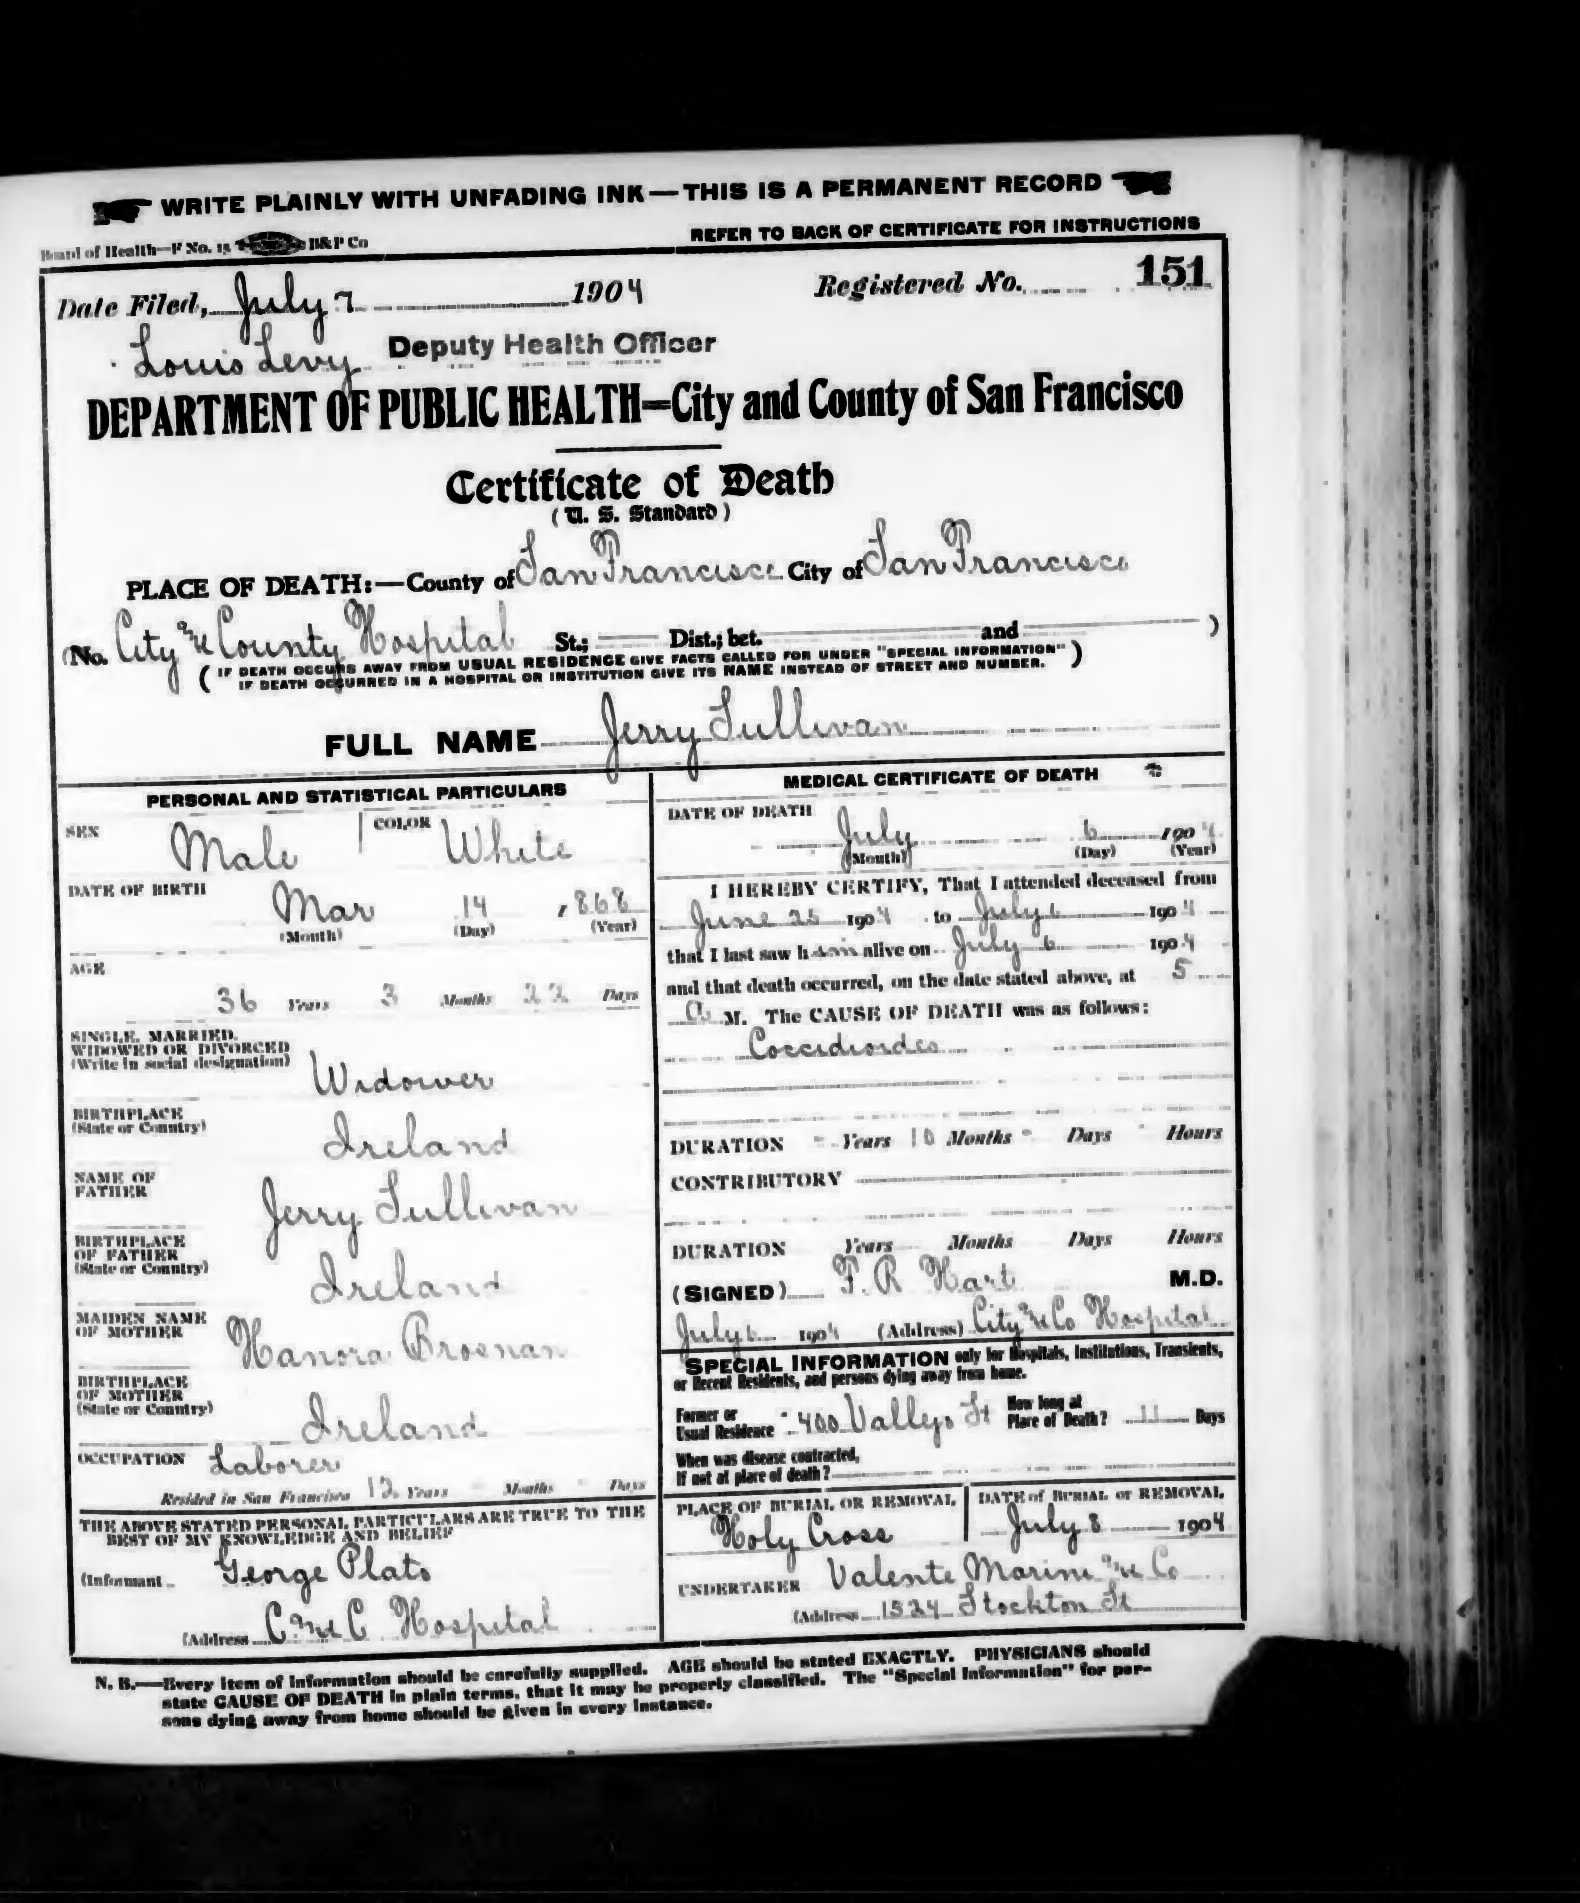 WRITE PLAINLY WITH UNFADING INK—THIS IS A PERMANENT RECORD
Board of Health—F No. 15 B&P Co
REFER TO BACK OF CERTIFICATE FOR INSTRUCTIONS
Date Filed, July 7 1904 Registered No. 151
Louis Levy Deputy Health Officer
DEPARTMENT OF PUBLIC HEALTH=City and County of San Francisco
Certificate of Death
(U. S. Standard)
PLACE OF DEATH:—County of San Francisco City of San Francisco
(No. City and County Hospital St.; Dist.; bet. and )
( IF DEATH OCCURS AWAY FROM USUAL RESIDENCE GIVE FACTS CALLED FOR UNDER "SPECIAL INFORMATION" )
IF DEATH OCCURRED IN A HOSPITAL OR INSTITUTION GIVE ITS NAME INSTEAD OF STREET AND NUMBER.
FULL NAME Jerry Sullivan
PERSONAL AND STATISTICAL PARTICULARS
SEX Male COLOR White
DATE OF BIRTH
Mar 14 , 868
(Month) (Day) (Year)
AGE
36 Years 3 Months 22 Days
SINGLE, MARRIED,
WIDOWED OR DIVORCED
(Write in social designation)
Widower
BIRTHPLACE
(State or Country)
Ireland
NAME OF
FATHER
Jerry Sullivan
BIRTHPLACE
OF FATHER
(State or Country)
Ireland
MAIDEN NAME
OF MOTHER
Hanora Brosnan
BIRTHPLACE
OF MOTHER
(State or Country)
Ireland
OCCUPATION Laborer
Resided in San Francisco 12 Years Months Days
THE ABOVE STATED PERSONAL PARTICULARS ARE TRUE TO THE
BEST OF MY KNOWLEDGE AND BELIEF
(Informant George Plato
(Address C and C Hospital
MEDICAL CERTIFICATE OF DEATH
DATE OF DEATH
July 6 1904
(Month) (Day) (Year)
I HEREBY CERTIFY, That I attended deceased from
June 25 1904 to July 6 1904
that I last saw him alive on July 6 1904
and that death occurred, on the date stated above, at 5
a M. The CAUSE OF DEATH was as follows:
Coccidioides
DURATION - Years 10 Months - Days - Hours
CONTRIBUTORY
DURATION Years Months Days Hours
(SIGNED) F. R Hart M.D.
July 6 1904 (Address) City and Co Hospital
SPECIAL INFORMATION only for Hospitals, Institutions, Transients,
or Recent Residents, and persons dying away from home.
Former or
Usual Residence 400 Vallejo St
How long at
Place of Death? 11 Days
When was disease contracted,
If not at place of death?
PLACE OF BURIAL OR REMOVAL
Holy Cross
DATE of BURIAL or REMOVAL
July 8 1904
UNDERTAKER Valente Marini and Co
(Address 1524 Stockton St
N. B.—Every item of information should be carefully supplied. AGE should be stated EXACTLY. PHYSICIANS should
state CAUSE OF DEATH in plain terms, that it may be properly classified. The "Special Information" for per-
sons dying away from home should be given in every instance.